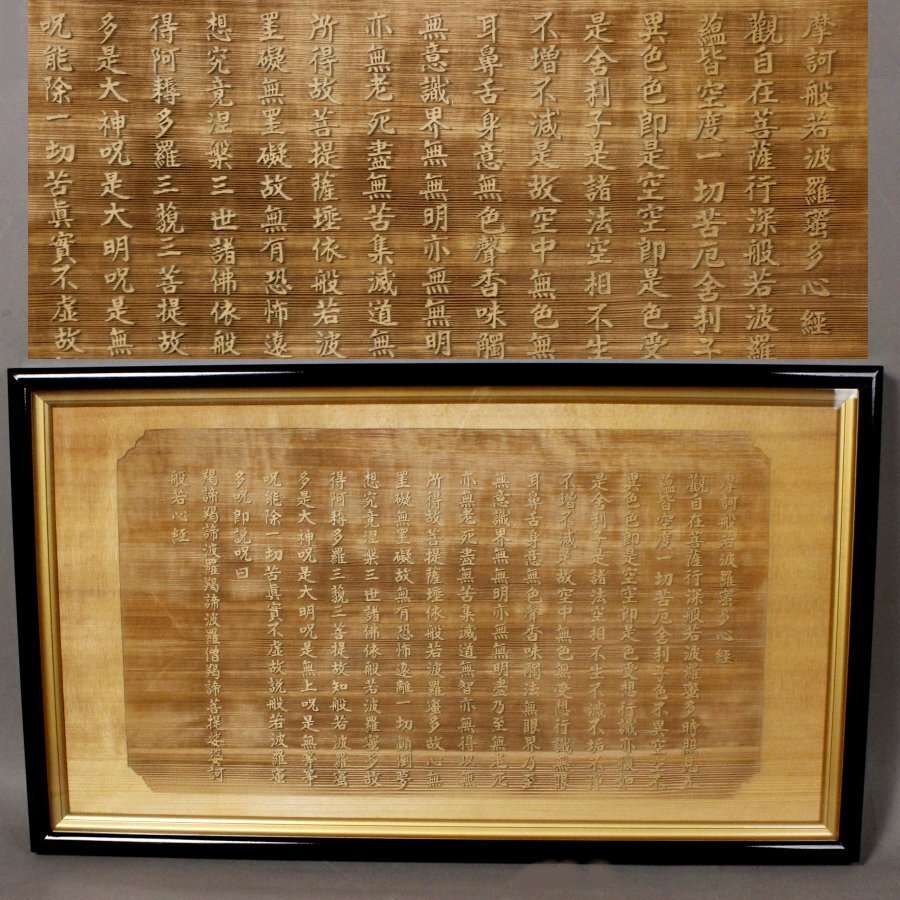 摩訶般若波羅蜜多心經
觀自在菩薩行深般若波羅
蘊皆空度一切苦厄舍利子
異色色即是空空即是色受
是舍利子是諸法空相不生
不增不減是故空中無色無
耳鼻舌身意無色聲香味觸
無意識界無無明亦無無明
亦無老死盡無苦集滅道無
所得故菩提薩埵依般若波
罣礙無罣礙故無有恐怖遠
想究竟涅槃三世諸佛依般
得阿耨多羅三藐三菩提故
多是大神呪是大明呪是無
呪能除一切苦眞實不虛故
摩訶般若波羅蜜多心經
觀自在菩薩行深般若波羅蜜多時照見五
蘊皆空度一切苦厄舍利子色不異空空不
異色色即是空空即是色受想行識亦復如
是舍利子是諸法空相不生不滅不垢不淨
不增不減是故空中無色無受想行識無眼
耳鼻舌身意無色聲香味觸法無眼界乃至
無意識界無無明亦無無明盡乃至無老死
亦無老死盡無苦集滅道無智亦無得以無
所得故菩提薩埵依般若波羅蜜多故心無
罣礙無罣礙故無有恐怖遠離一切顛倒夢
想究竟涅槃三世諸佛依般若波羅蜜多故
得阿耨多羅三藐三菩提故知般若波羅蜜
多是大神呪是大明呪是無上呪是無等等
呪能除一切苦眞實不虛故説般若波羅蜜
多呪即説呪曰
羯諦羯諦波羅羯諦波羅僧羯諦菩提娑婆訶
般若心經